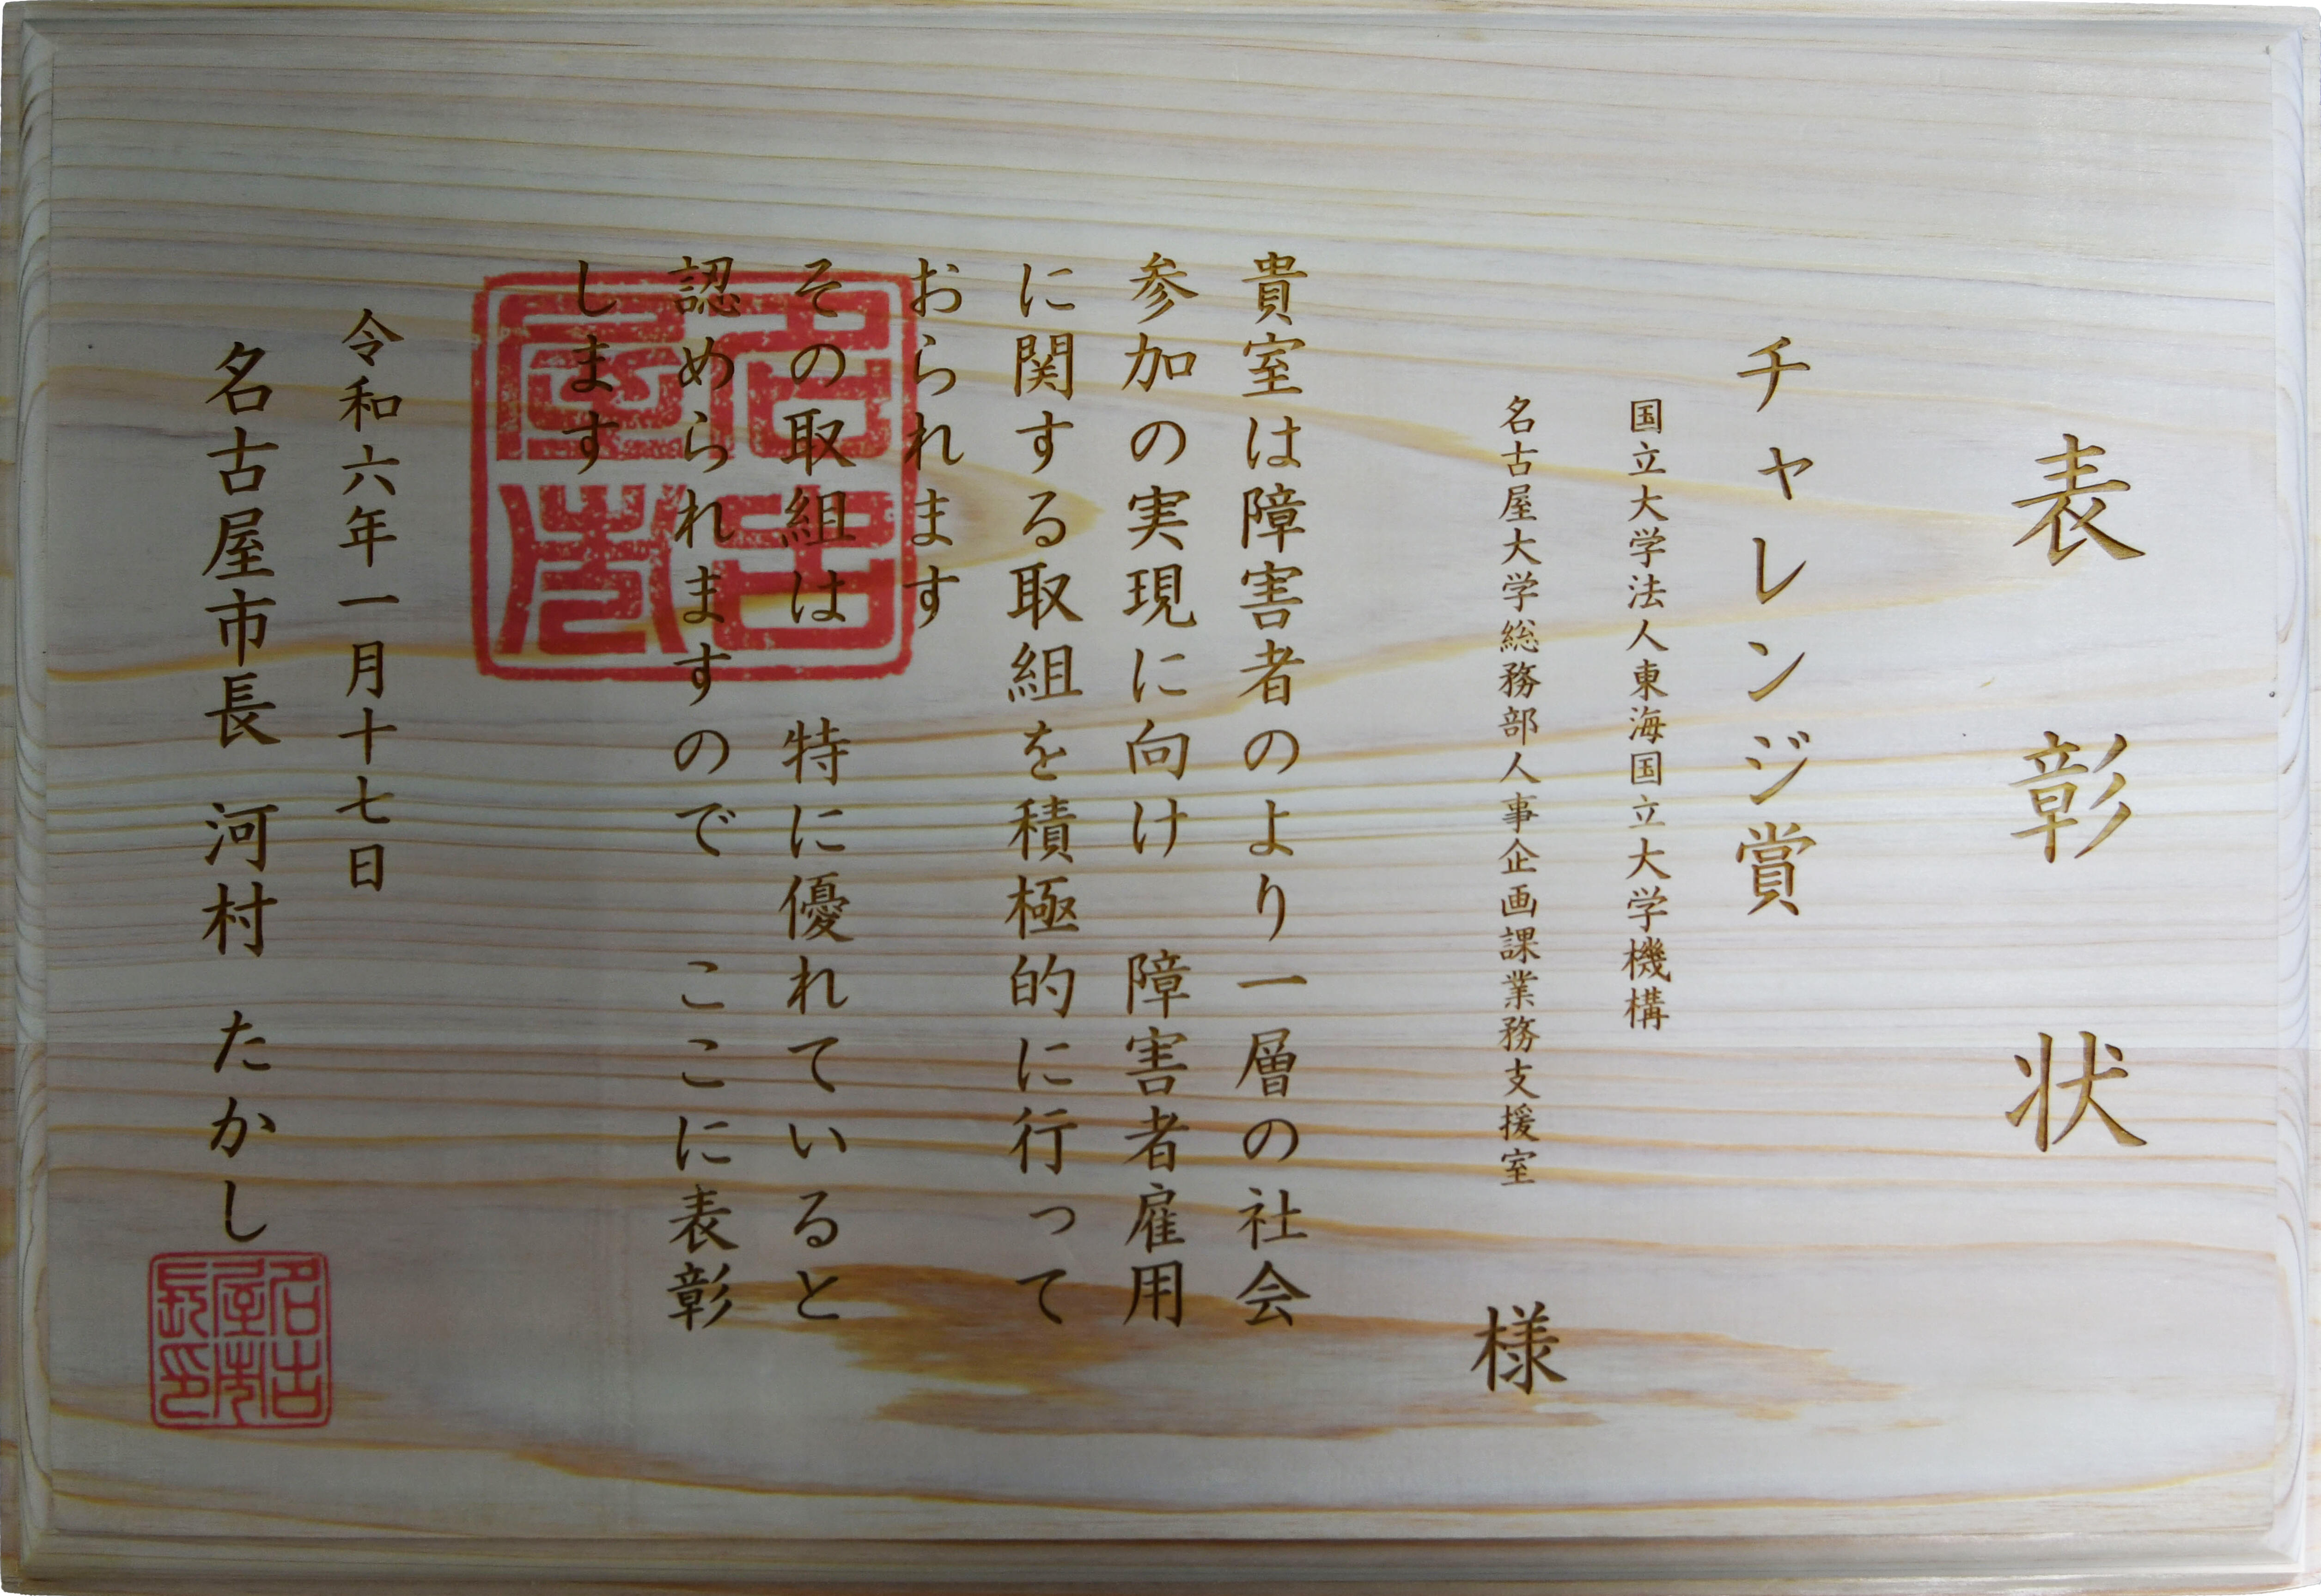 表彰状
チャレンジ賞
国立大学法人東海国立大学機構
名古屋大学総務部人事企画課業務支援室
様
貴室は障害者のより一層の社会
参加の実現に向け　障害者雇用
に関する取組を積極的に行って
おられます
その取組は　特に優れていると
認められますので　ここに表彰
します
令和六年一月十七日
名古屋市長　河村　たかし
名古屋市
名古屋市長印